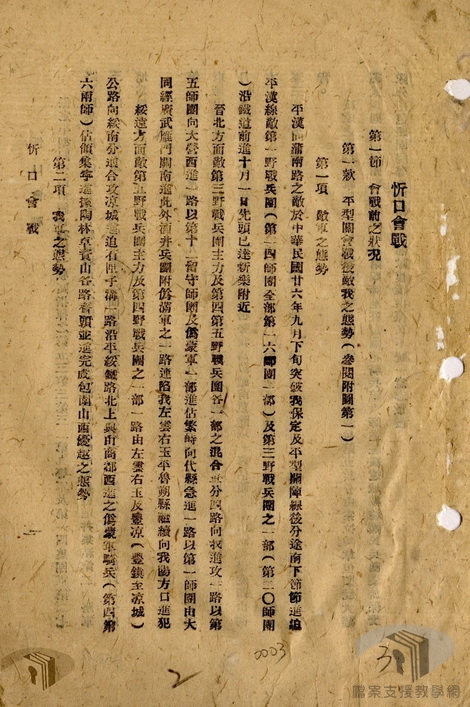 忻口會戰
第一節　會戰前之狀況
第一款　平型關會戰後敵我之態勢（參閱附圖第一）
第一項　敵軍之態勢
平漢同蒲兩路之敵於中華民國廿六年九月下旬突破我保定及平型關陣線後分途南下節節進迫
平漢線敵第一野戰兵團（第一四師團全部第一六師團一部）及第三野戰兵團之一部（第二〇師團
）沿鐵道前進十月一日先頭已達新樂附近
晉北方面敵第三野戰兵團主力及第四第五野戰兵團各一部之混合 分四路向我進攻一路以第
五師團向大營西進一路以第十一留守師團及僞蒙軍一部進佔繁峙向代縣急進一路以第一師團由大
同經廣武雁門關南進此外酒井兵團附僞滿軍之一路連陷我左雲右玉平魯朔縣繼續向我陽方口進犯
綏遠方面敵第五野戰兵團主力及第四野戰兵團之一部一路由左雲右玉及豐涼（豐鎮至涼城）
公路向綏南分進合攻涼城 迫石匣子溝一路沿平綏鐵路北上與由商都西進之僞蒙軍騎兵（第四第
六兩師）佔領集寧進擾陶林卓資山各路會頭並進完成包圍山西優越之態勢
第二項　我軍之態勢
忻口會戰
一
2
0003
3
檔案支援教學網